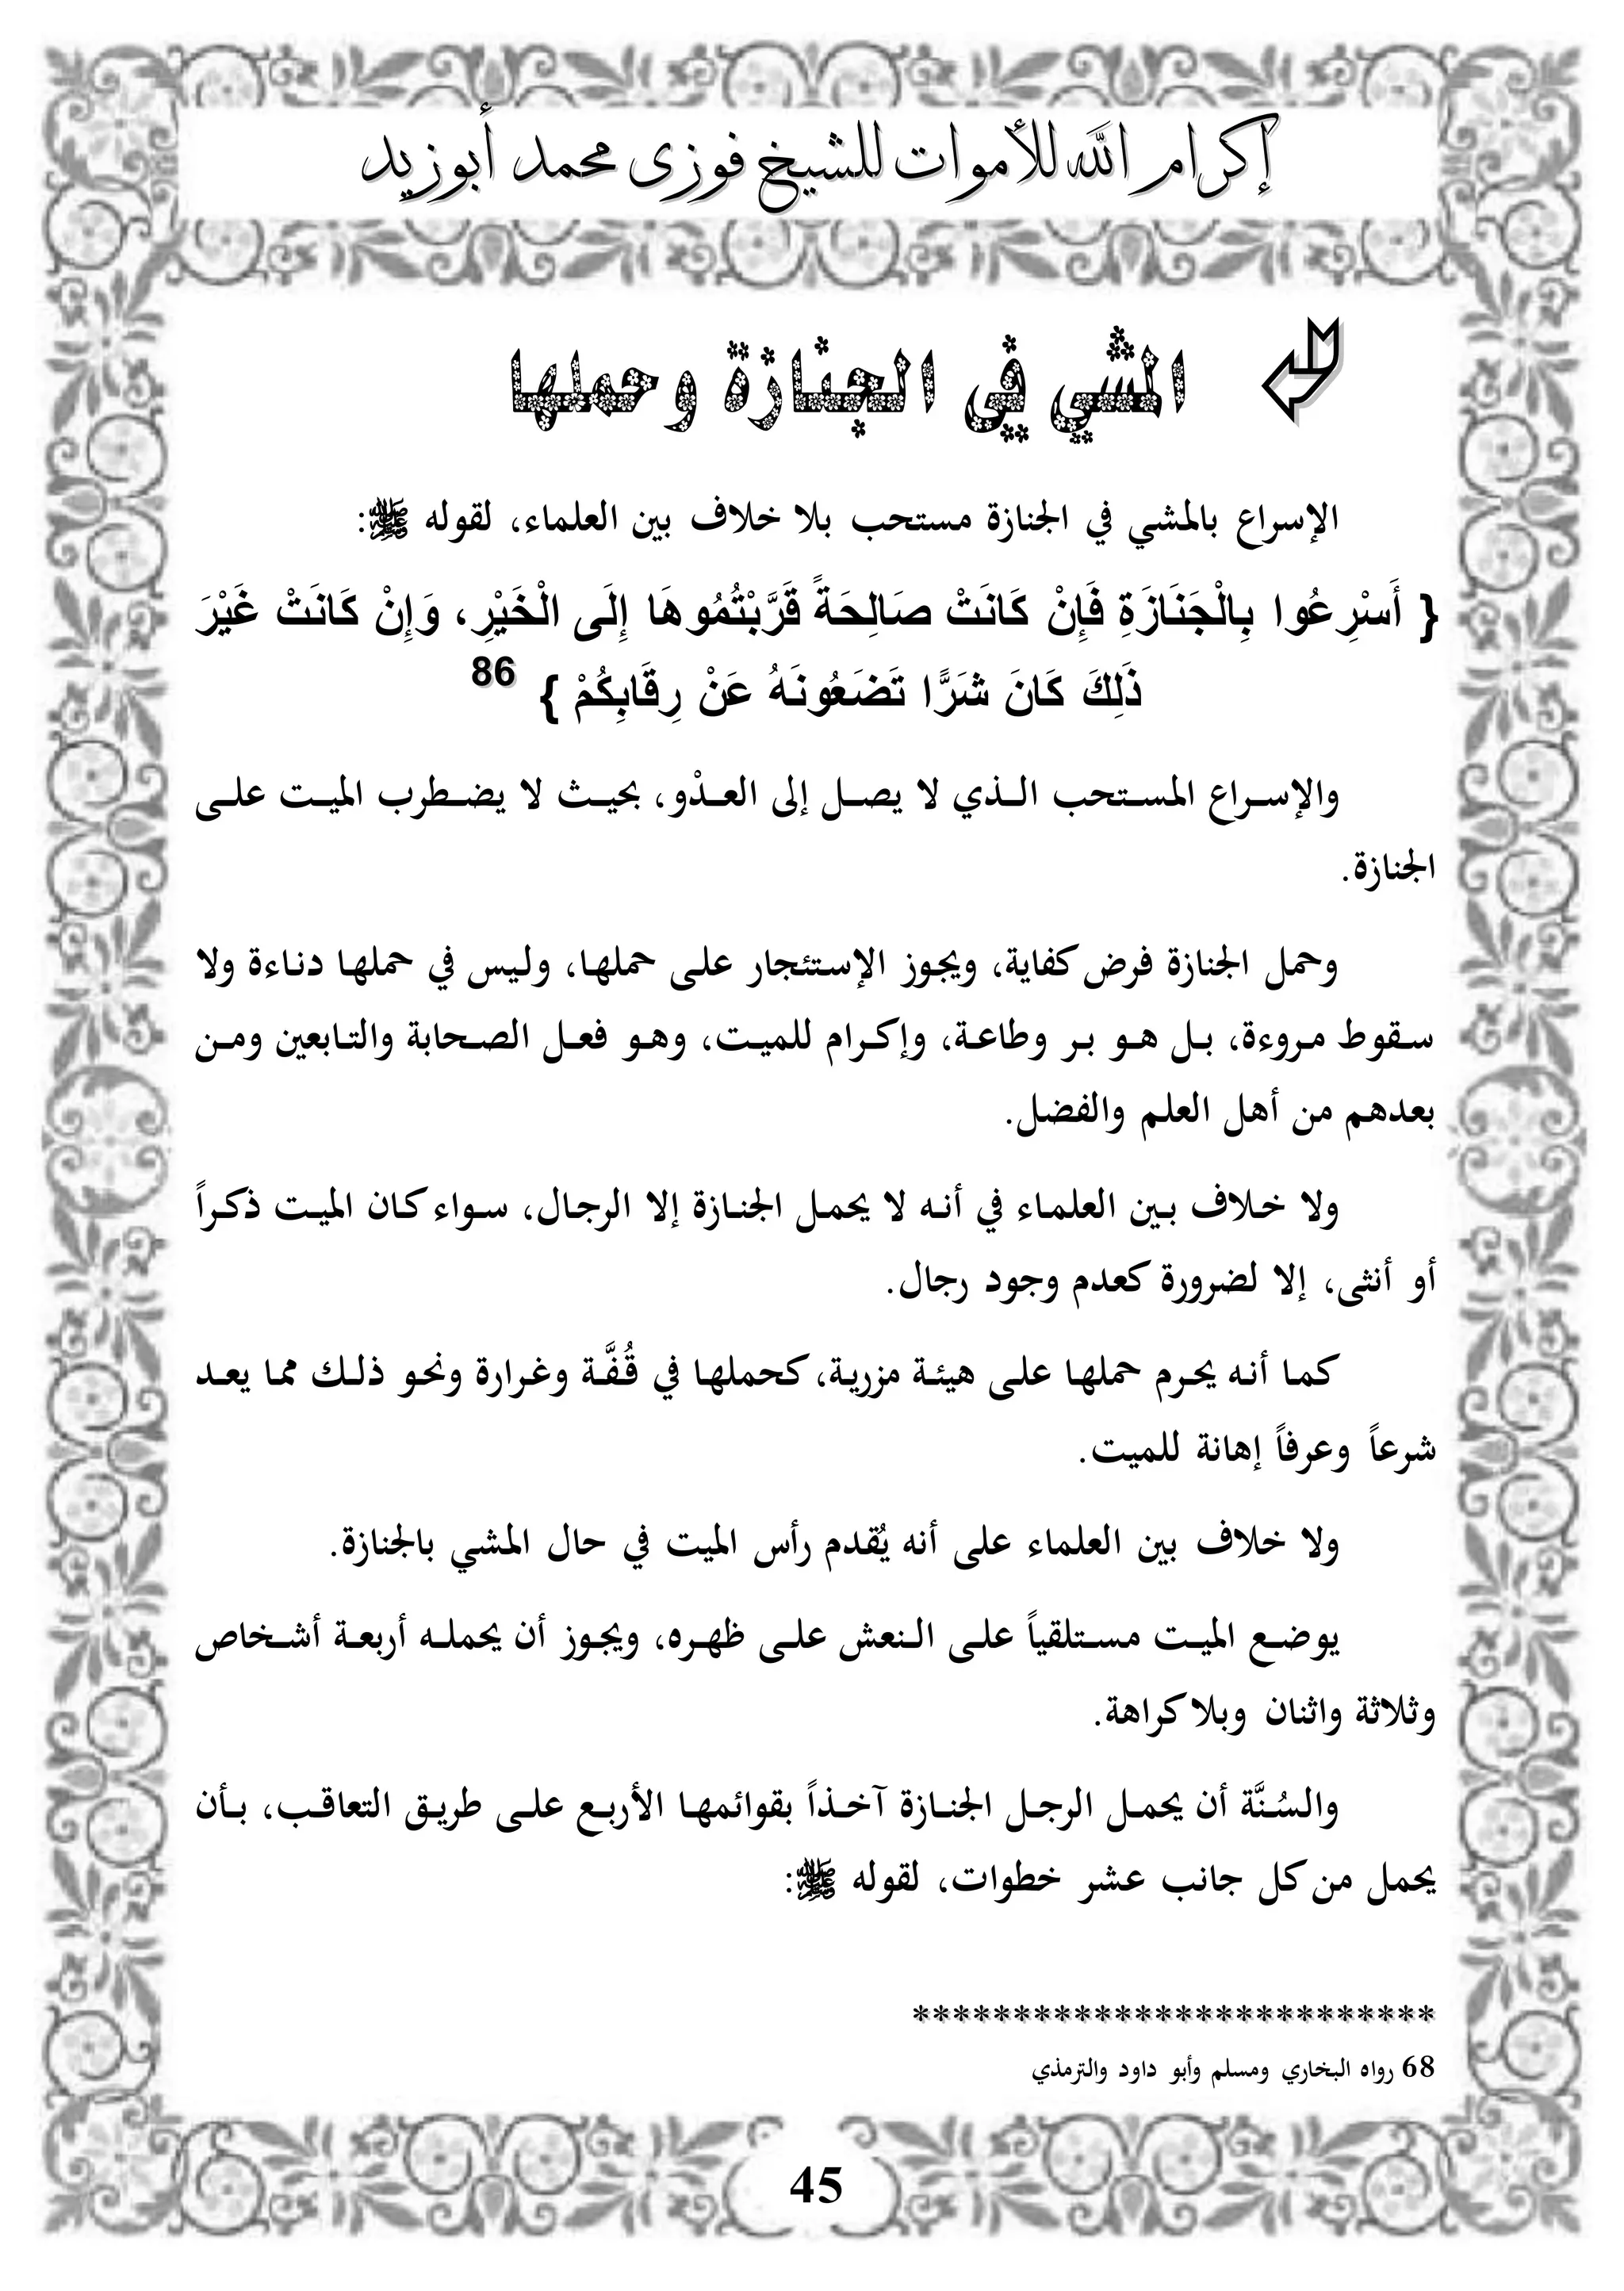 إكرام الله للأموات للشيخ فوزى محمد أبوزيد
المشي فى الجنازة وحملها
الإسراع بالمشي في الجنازة مستحب بلا خلاف بين العلماء، لقوله ﷺ:
{ أَسْرِعُوا بِالْجَنَازَةِ فَإِنْ كَانَتْ صَالِحَةً قَرَّبْتُمُوهَا إِلَى الْخَيْرِ، وَإِنْ كَانَتْ غَيْرَ
ذَلِكَ كَانَ شَرًّا تَضَعُونَهُ عَنْ رِقَابِكُمْ } 86
والإسراع المستحب الذي لا يصل إلى العدْو، بحيث لا يضطرب الميت على
الجنازة.
وحمل الجنازة فرض كفاية، ويجوز الإستئجار على حملها، وليس في حملها دناءة ولا
سقوط مروءة، بل هو بر وطاعة، وإكرام للميت، وهو فعل الصحابة والتابعين ومن
بعدهم من أهل العلم والفضل.
ولا خلاف بين العلماء في أنه لا يحمل الجنازة إلا الرجال، سواء كان الميت ذكراً
أو أنثى، إلا لضرورة كعدم وجود رجال.
كما أنه يحرم حملها على هيئة مزرية، كحملها في قُفَّة وغرارة ونحو ذلك مما يعد
شرعاً وعرفاً إهانة للميت.
ولا خلاف بين العلماء على أنه يُقدم رأس الميت في حال المشي بالجنازة.
يوضع الميت مستلقياً على النعش على ظهره، ويجوز أن يحمله أربعة أشخاص
وثلاثة واثنان وبلا كراهة.
والسُنَّة أن يحمل الرجل الجنازة آخذاً بقوائمها الأربع على طريق التعاقب، بأن
يحمل من كل جانب عشر خطوات، لقوله ﷺ:
**************************
68 رواه البخاري ومسلم وأبو داود والترمذي
45